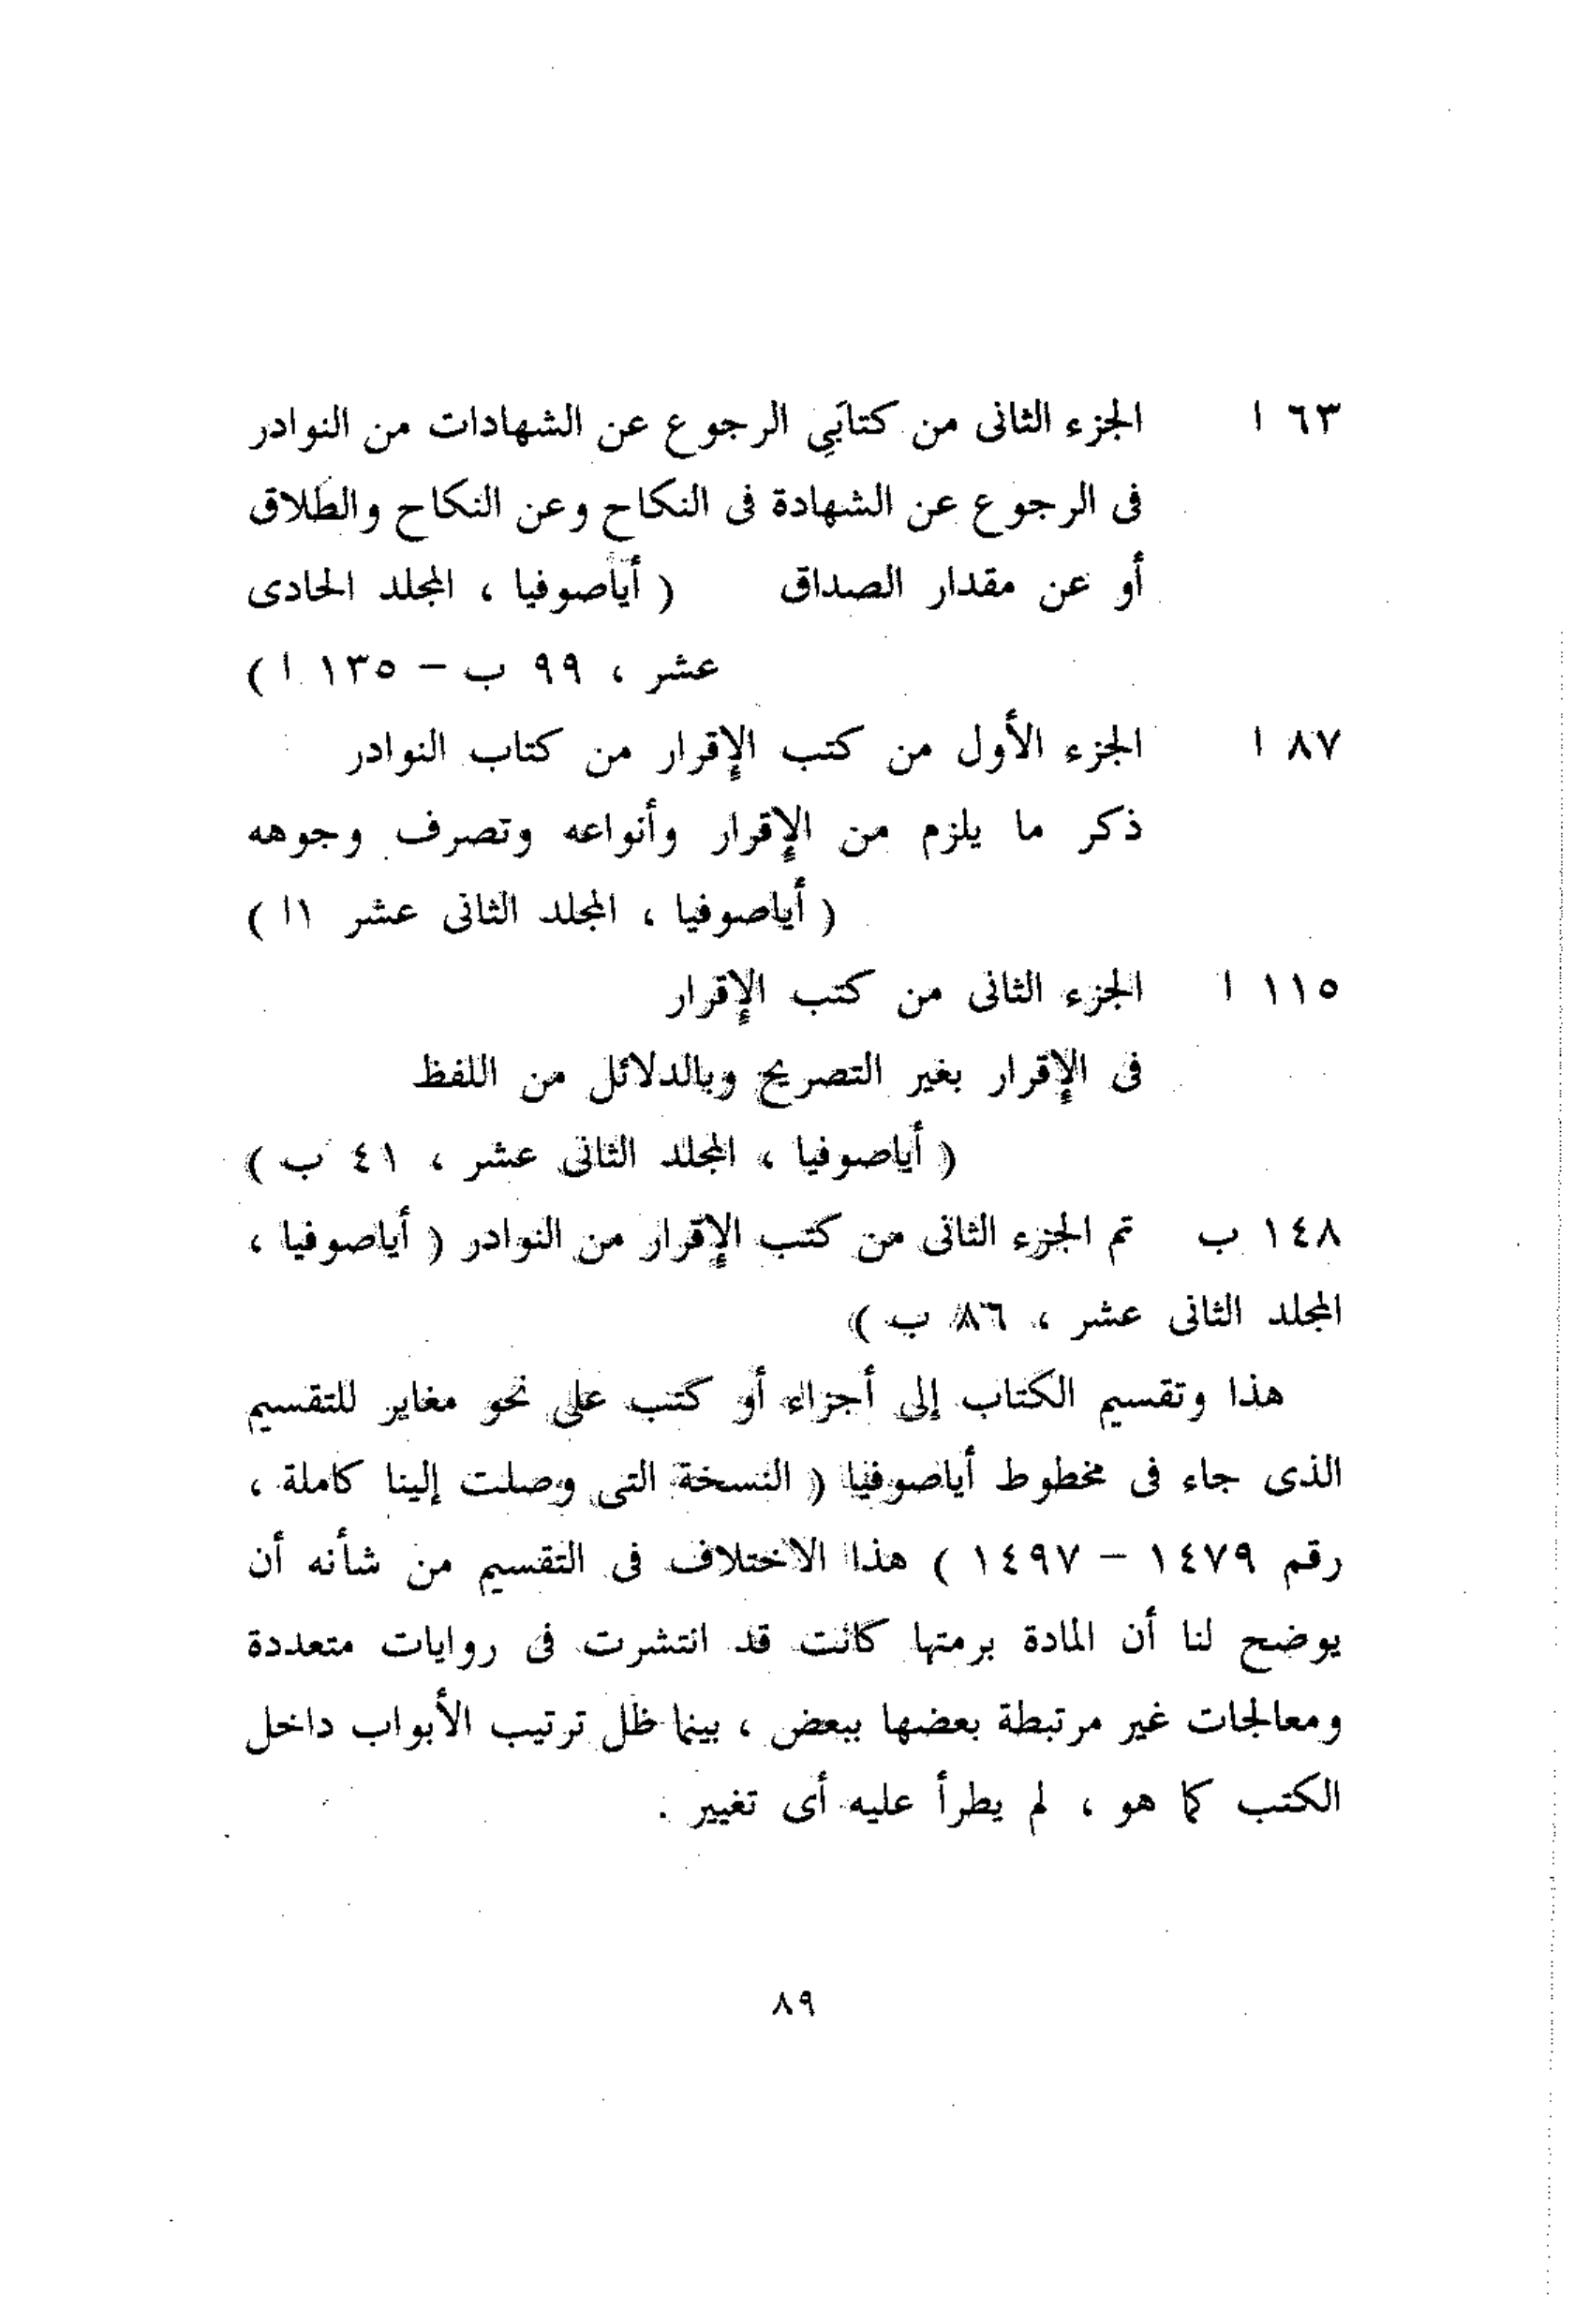 ٦٣ ا الجزء الثانى من كتابَي الرجوع عن الشهادات من النوادر
فى الرجوع عن الشهادة فى النكاح وعن النكاح والطلاق
أو عن مقدار الصداق ( أياصوفيا ، المجلد الحادى
عشر ، ٩٩ ب – ١٣٥ ا )
٨٧ ا الجزء الأول من كتب الإقرار من كتاب النوادر
ذكر ما يلزم من الإقرار وأنواعه وتصرف وجوهه
( أياصوفيا ، المجلد الثانى عشر ١ا )
١١٥ ا الجزء الثانى من كتب الإقرار
فى الإقرار بغير التصريح وبالدلائل من اللفظ
( أياصوفيا ، المجلد الثانى عشر ، ٤١ ب )
١٤٨ ب تم الجزء الثانى من كتب الإقرار من النوادر ( أياصوفيا ،
المجلد الثانى عشر ، ٨٦ ب )
هذا وتقسيم الكتاب إلى أجزاء أو كتب على نحو مغاير للتقسيم
الذى جاء فى مخطوط أياصوفيا ( النسخة التى وصلت إلينا كاملة ،
رقم ١٤٧٩ – ١٤٩٧ ) هذا الاختلاف فى التقسيم من شأنه أن
يوضح لنا أن المادة برمتها كانت قد انتشرت فى روايات متعددة
ومعالجات غير مرتبطة بعضها ببعض ، بينما ظل ترتيب الأبواب داخل
الكتب كما هو ، لم يطرأ عليه أى تغيير .
٨٩